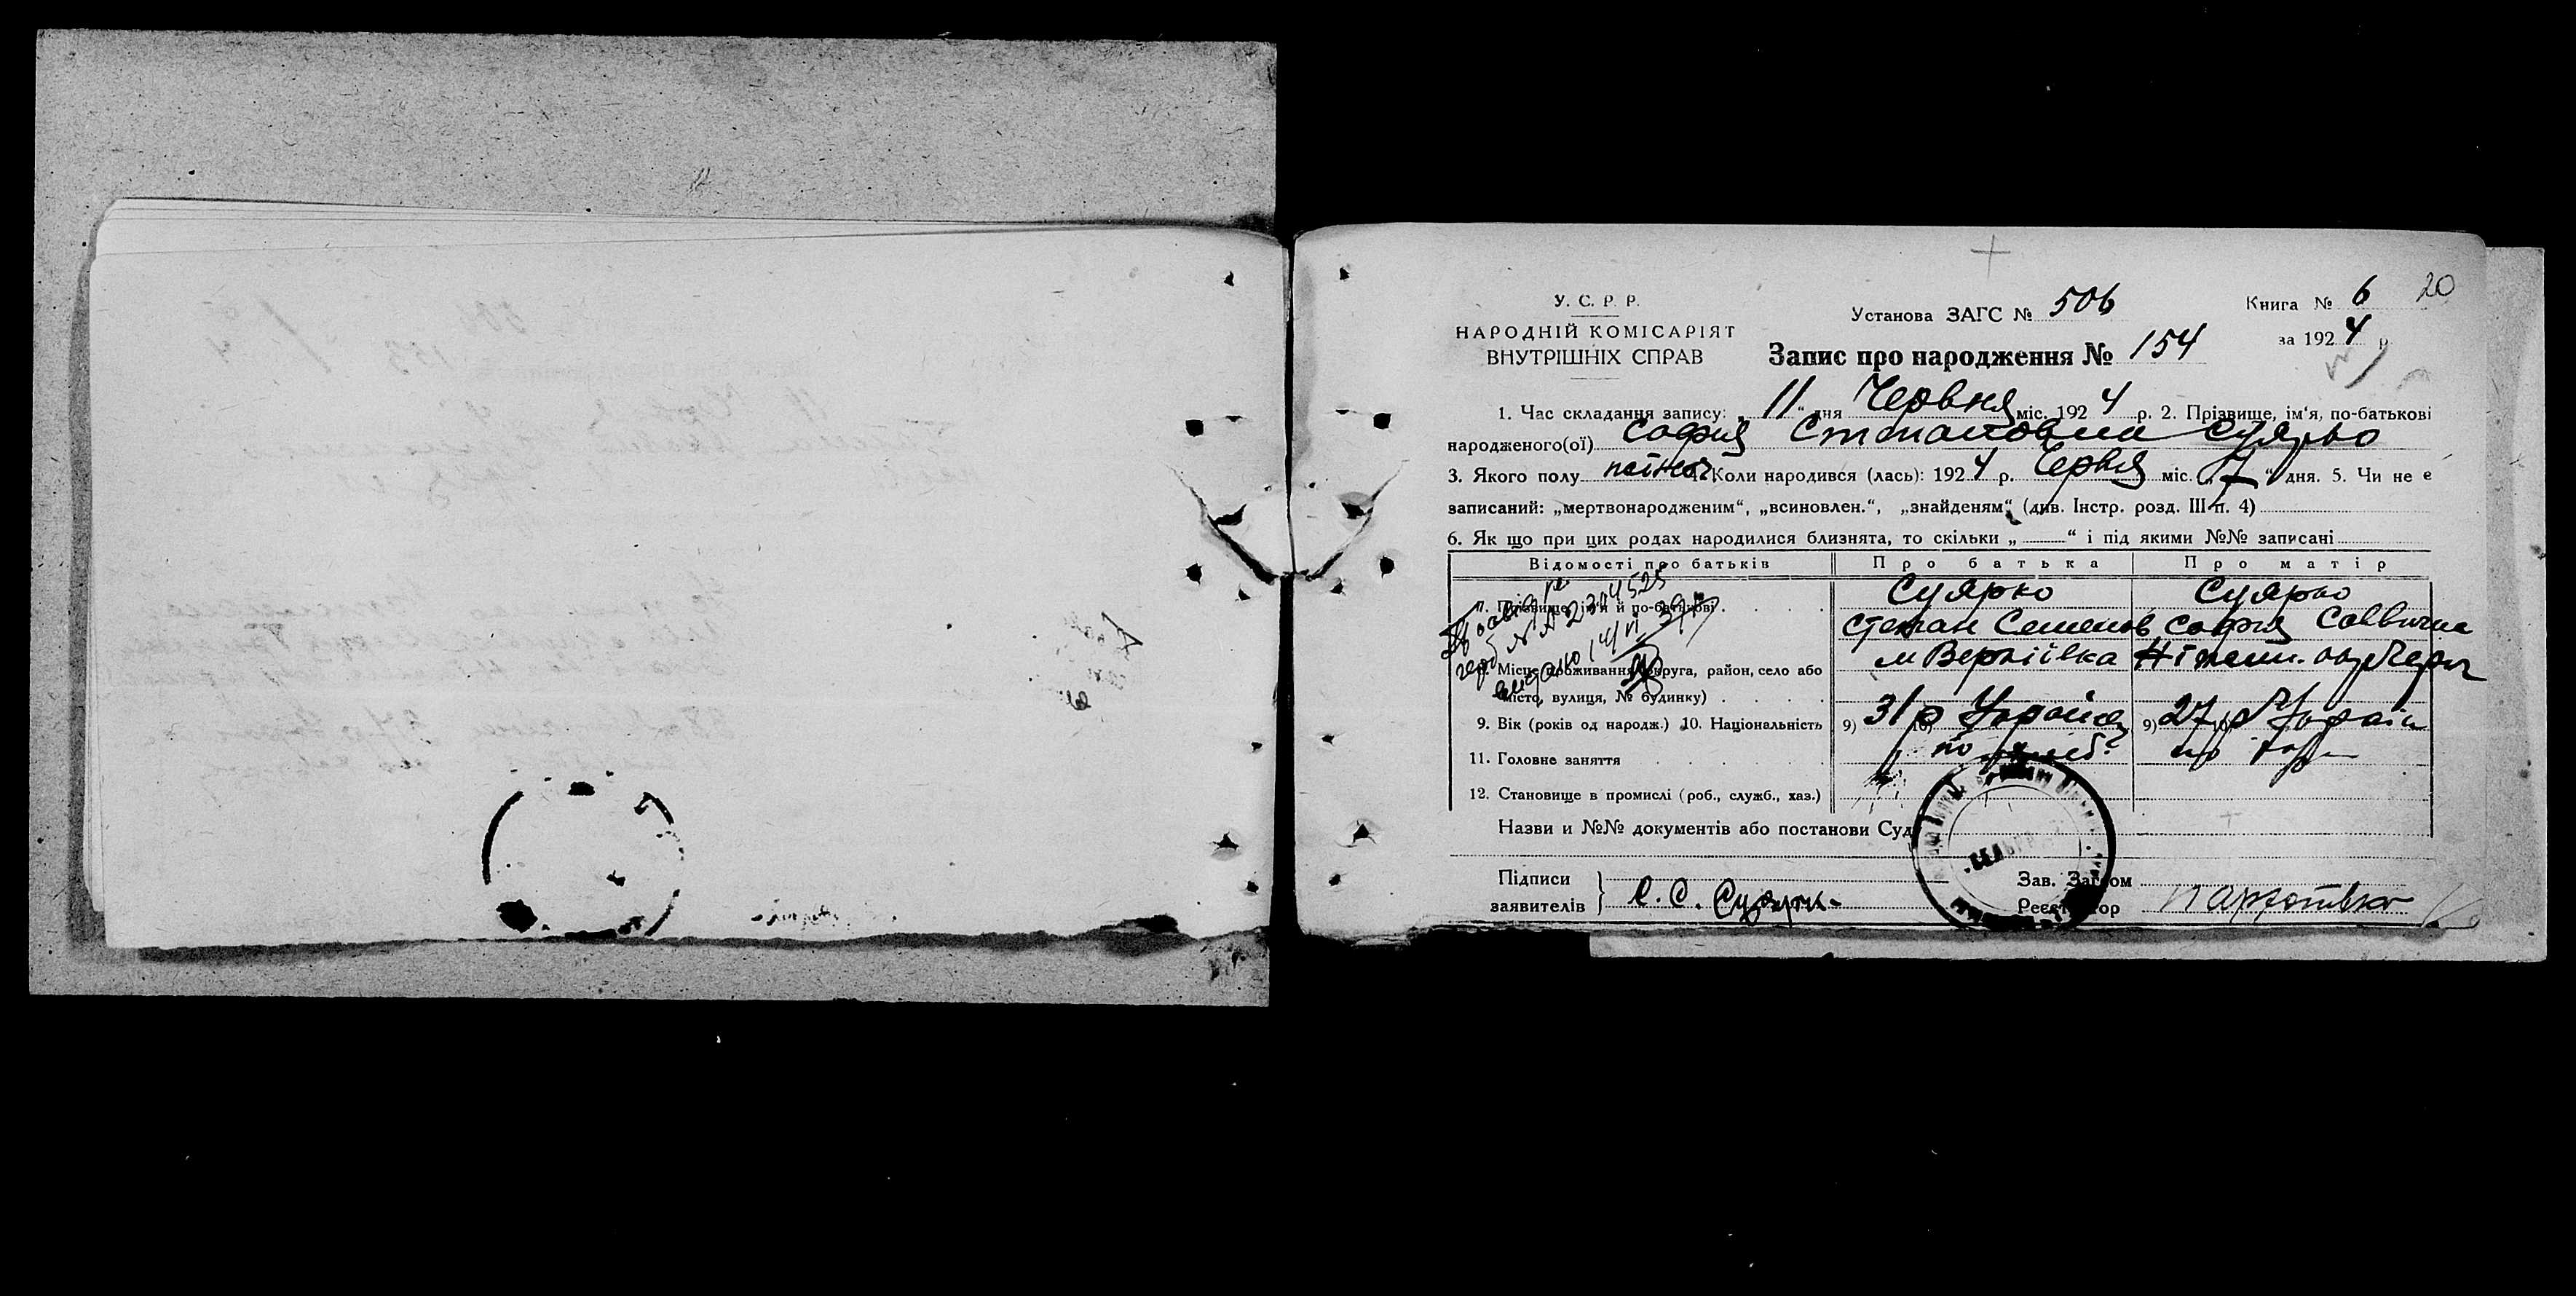 У. С. Р. Р.
НАРОДНІЙ КОМІСАРІЯТ
ВНУТРІШНІХ СПРАВ
Установа ЗАГС № 506
Книга № 6 20
за 1924 р.
Запис про народження № 154
1. Час складання запису: „11“ дня Червня міс. 1924 р. 2. Прізвище, ім'я, по-батькові
народженого(ої) София Степановна Суярко
3. Якого полу жіноч 4. Коли народився (лась): 1924 р. Червня міс. „7“ дня. 5. Чи не є
записаний: „мертвонародженим“, „всиновлен.“, „знайденям“ (див. Інстр. розд. III п. 4)
6. Як що при цих родах народилися близнята, то скільки „ “ і під якими №№ записані
Відомості про батьків Про батька Про матір
7. Прізвище, ім'я й по-батькові Суярко Суярко
Степан Семенов София Саввична
8. Місце проживання (округа, район, село або м Вертіївка Ніжин.
місто, вулиця, № будинку)
9. Вік (років од народж.) 10. Національність 9) 31 р 10) Украйнец 9) 27 р 10) Украін
11. Головне заняття
12. Становище в промислі (роб., служб., хаз.)
Назви и №№ документів або постанови Суду
Підписи
заявителів С. С. Суярк
Зав. Загсом
Реєстратор